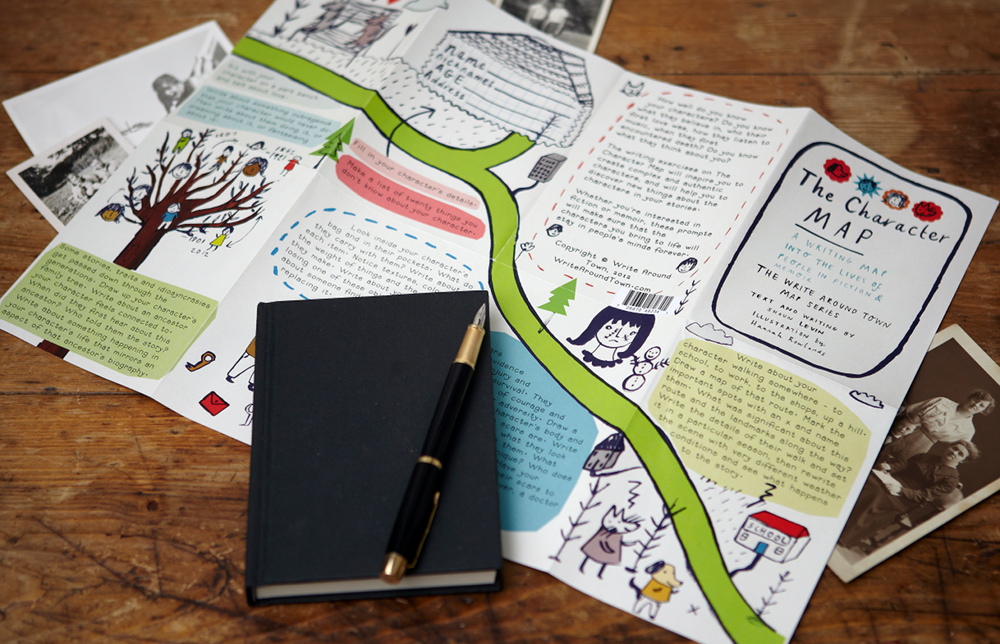 name
NICKNAMES
AGE
Address
Fill in your character's details:
Make a list of twenty things you
don't know about your character.
1981
2012
Stories, traits and idiosyncrasies
get passed down through the
generations. Draw your character's
family tree. Write about an ancestor
your character feels connected to.
When did they first hear about this
ancestor? Who told them the story?
Write about something happening in
your character's life that mirrors an
aspect of that ancestor's biography.
Look inside your character's
bag and in their pockets. What do
they carry with them? Write about
each item. Notice texture, color,
the weight of things, and the
losing one of these
about someone finding
replacing it.
How well do you know
your characters? Do you know
what they believe in, who their
first love was, how they listen to
music, when they first
encountered death? Do you know
what they think about you?
The writing exercises on The
Character Map will inspire you to
create complex and authentic
characters, and will help you to
discover new things about the
characters in your stories.
Whether you're interested in
fiction or memoir, these prompts
will make sure the
characters you bring to life will
stay in people's minds forever.
Copyright © Write Around
Town, 2012
WriteAroundTown.com
The Character
MAP
A WRITING MAP
INTO THE LIVES OF
PEOPLE IN FICTION &
MEMOIR
THE WRITE AROUND TOWN
MAP SERIES
TEXT AND WRITING BY
SHAUN LEVIN
ILLUSTRATION by
Hannah Rowlands
Write about your
character walking somewhere - to
school, to work, to the shops, up a hill.
Draw a map of that route. Mark the
important spots with an x and name
them. What was significant about this
route and the landmarks along the way?
Write the details of their walk and set
it in a particular season, then rewrite
the scene with very different weather
conditions and see what happens
to the story.
evidence
injury and
survival. They
of courage and
adversity. Draw a
character's body and
scars are. Write
what they look
them. What
unique? Who does
have your
their scars to
a doctor
SCHOOL